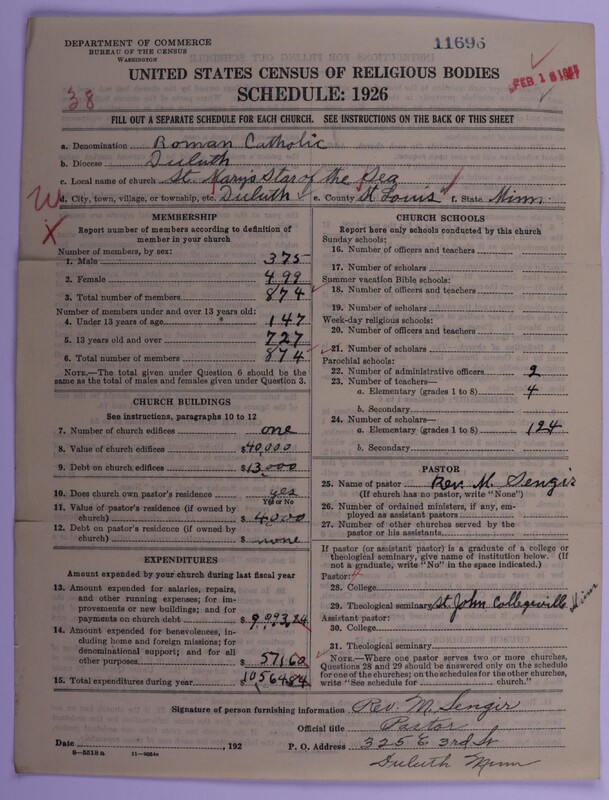 DEPARTMENT OF COMMERCE
BUREAU OF THE CENSUS
WASHINGTON
11696
FEB. 1
38
UNITED STATES CENSUS OF RELIGIOUS BODIES
SCHEDULE: 1926
FILL OUT A SEPARATE SCHEDULE FOR EACH CHURCH. SEE INSTRUCTIONS ON THE BACK OF THIS SHEET
a. Denomination Roman Catholic
b. Diocese Duluth
c. Local name of church St. Marys Star of the Sea
d. City, town, village, or township, etc. Duluth e. County St Louis f. State Minn.
MEMBERSHIP
Report number of members according to definition of
member in your church
Number of members, by sex:
1. Male 375
2. Female 499
3. Total number of members 874
Number of members under and over 13 years old:
4. Under 13 years of age 147
5. 13 years old and over 727
6. Total number of members 874
NOTE.—The total given under Question 6 should be
same as the total of males and females given under Question 3.
CHURCH BUILDINGS
See instructions, paragraphs 10 to 12
7. Number of church edifices one
8. Value of church edifices $40,000
9. Debt on church edifices $13,000
10. Does church own pastor's residence yes
Yes or No
11. Value of pastor's residence (if owned by
church) $4000
12. Debt on pastor's residence (if owned by
church) $none
EXPENDITURES
Amount expended by your church during last fiscal year
13. Amount expended for salaries, repairs,
and other running expenses; for im-
provements or new buildings; and for
payments on church debt $9,993,24
14. Amount expended for benevolences, in-
cluding home and foreign missions; for
denominational support; and for all
other purposes $571,60
15. Total expenditures during year $10564 84
CHURCH SCHOOLS
Report here only schools conducted by this church
Sunday schools:
16. Number of officers and teachers
17. Number of scholars
Summer vacation Bible schools:
18. Number of officers and teachers
19. Number of scholars
Week-day religious schools:
20. Number of officers and teachers
21. Number of scholars
Parochial schools:
22. Number of administrative officers 2
23. Number of teachers—
a. Elementary (grades 1 to 8) 4
b. Secondary
24. Number of scholars—
a. Elementary (grades 1 to 8) 124
b. Secondary
PASTOR
25. Name of pastor Rev. M. Sengir
(If church has no pastor, write "None")
26. Number of ordained ministers, if any, em-
ployed as assistant pastors
27. Number of other churches served by the
pastor or his assistants
If pastor (or assistant pastor) is a graduate of a college or
theological seminary, give name of institution below. (If
not a graduate, write "No" in the space indicated.)
Pastor:
28. College
29. Theological seminary St. John Collegeville Minn
Assistant pastor:
30. College
31. Theological seminary
NOTE.—Where one pastor serves two or more churches,
Questions 28 and 29 should be answered only on the schedule
for one of the churches; on the schedules for the other churches,
write "See schedule for church."
Signature of person furnishing information Rev. M. Sengir
Official title Pastor
Date , 192 P. O. Address 325 E 3rd St
8—5518a 11—9884a
Duluth Minn